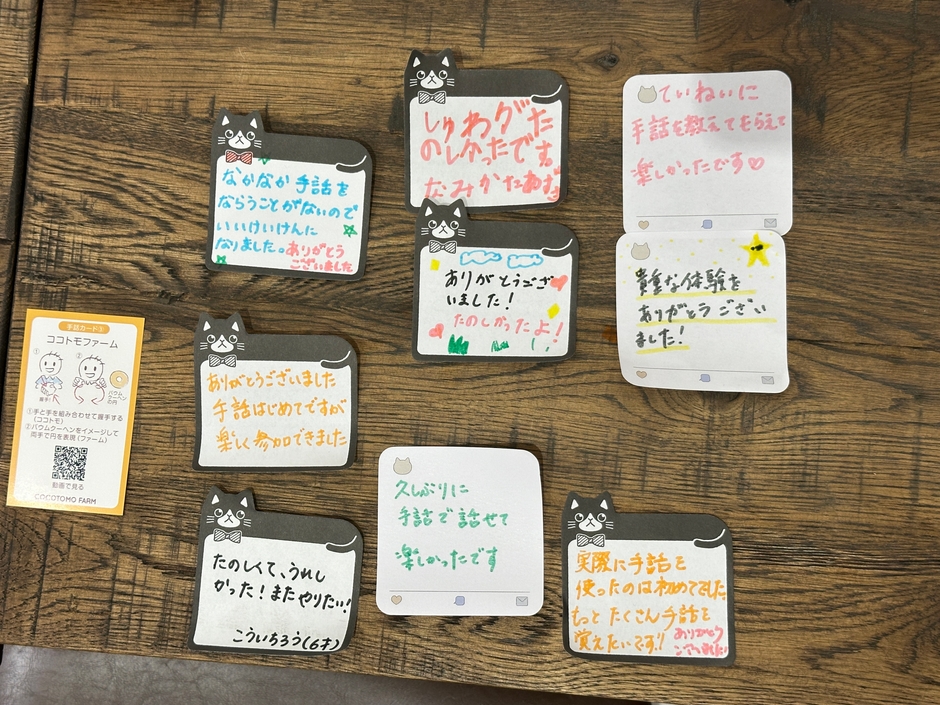 なかなか手話を
ならうことがないので
いいけいけんに
なりました。ありがとう
ございました
しゅわがた
のしかったです。
なみかたあずさ
ていねいに
手話を教えてもらえて
楽しかったです♡
ありがとうござ
いました!
たのしかったよ!
貴重な体験を
ありがとうござい
ました!
手話カード③
ココトモファーム
① ②
握手!
バウム
クーヘン
の円
①手と手を組み合わせて握手する
(ココトモ)
②バウムクーヘンをイメージして
両手で円を表現(ファーム)
動画で見る
COCOTOMO FARM
ありがとうございました
手話はじめてですが
楽しく参加できました
たのしくて、うれし
かった!またやりたい!
こういちろう(6才)
久しぶりに
手話で話せて
楽しかったです
実際に手話を
使ったのは初めてでした。
もっとたくさん手話を
覚えたいです!
ありがとう
ございました